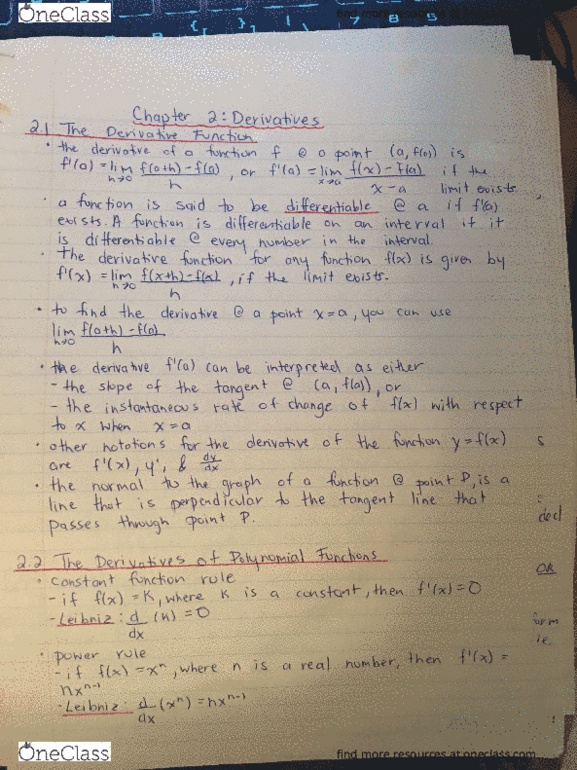 OneClass
find more
7 8 5
Chapter 2: Derivatives
2.1 The Derivative Function
• the derivative of a function f @ a point (a, f(a)) is
f'(a) = lim h→0 f(a+h) - f(a) / h , or f'(a) = lim x→a f(x) - f(a) / x - a if the limit exists
• a function is said to be differentiable @ a if f'(a)
exists. A function is differentiable on an interval if it
is differentiable @ every number in the interval.
• The derivative function for any function f(x) is given by
f'(x) = lim h→0 f(x+h) - f(x) / h , if the limit exists.
• to find the derivative @ a point x = a, you can use
lim h→0 f(a+h) - f(a) / h
• the derivative f'(a) can be interpreted as either
- the slope of the tangent @ (a, f(a)), or
- the instantaneous rate of change of f(x) with respect
to x when x = a
• other notations for the derivative of the function y = f(x)
are f'(x), y', & dy/dx
• the normal to the graph of a function @ point P, is a
line that is perpendicular to the tangent line that
passes through point P.
2.2 The Derivatives of Polynomial Functions
• constant function rule
- if f(x) = K, where K is a constant, then f'(x) = 0
- Leibniz: d/dx (K) = 0
• power rule
- if f(x) = xⁿ, where n is a real number, then f'(x) =
nxⁿ⁻¹
- Leibniz: d/dx (xⁿ) = nxⁿ⁻¹
OR
ie.
OneClass
find more resources at oneclass.com